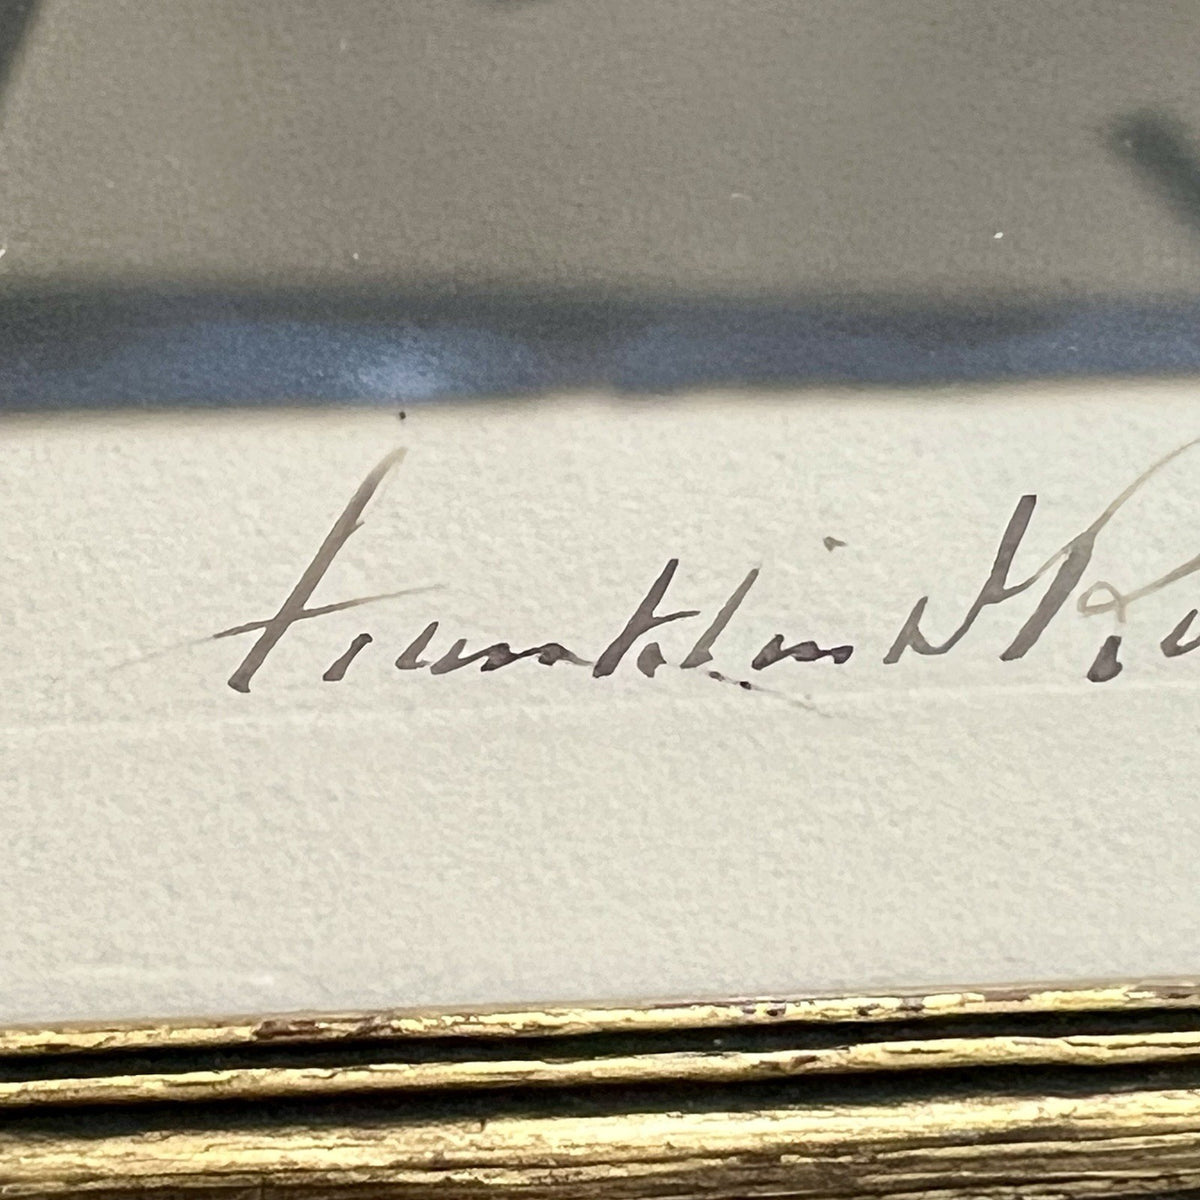 Franklin D Ro